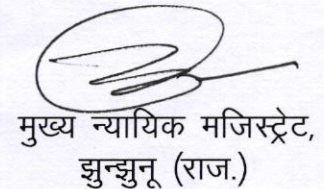 मुख्य न्यायिक मजिस्ट्रेट,
झुन्झुनू (राज.)